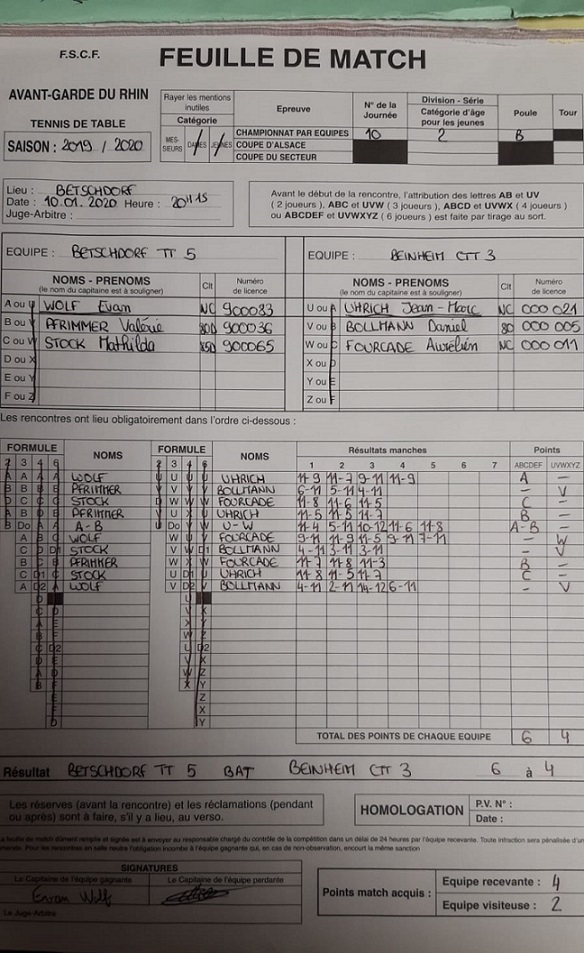 F.S.C.F. FEUILLE DE MATCH
AVANT-GARDE DU RHIN
TENNIS DE TABLE
SAISON : 2019 / 2020
Rayer les mentions inutiles
Catégorie
MES-SIEURS DAMES JEUNES
Epreuve N° de la Journée Division - Série Catégorie d'âge pour les jeunes Poule Tour
CHAMPIONNAT PAR EQUIPES 10 2 B
COUPE D'ALSACE
COUPE DU SECTEUR
Lieu : BETSCHDORF
Date : 10.01.2020 Heure : 20H15
Juge-Arbitre :
Avant le début de la rencontre, l'attribution des lettres AB et UV
( 2 joueurs ), ABC et UVW ( 3 joueurs ), ABCD et UVWX ( 4 joueurs )
ou ABCDEF et UVWXYZ ( 6 joueurs ) est faite par tirage au sort.
EQUIPE : BETSCHDORF TT 5
NOMS - PRENOMS Clt Numéro de licence
(le nom du capitaine est à souligner)
A ou U WOLF Evan NC 900083
B ou V PFRIMMER Valérie 80D 900036
C ou W STOCK Mathilda 900065
D ou X
E ou Y
F ou Z
EQUIPE : BEINHEIM CTT 3
NOMS - PRENOMS Clt Numéro de licence
(le nom du capitaine est à souligner)
U ou A UHRICH Jean-Marc NC 000 021
V ou B BOLLMANN Daniel 80 000 005
W ou C FOURCADE Aurélien NC 000 011
X ou D
Y ou E
Z ou F
Les rencontres ont lieu obligatoirement dans l'ordre ci-dessous :
FORMULE NOMS FORMULE NOMS Résultats manches Points
2 3 4 6 2 3 4 6 1 2 3 4 5 6 7 ABCDEF UVWXYZ
A WOLF U UHRICH 11-9 11-7 9-11 11-9 A –
B PFRIMMER V BOLLMANN 6-11 5-11 4-11 – V
C STOCK W FOURCADE 11-8 11-6 11-5 C –
B PFRIMMER U UHRICH 11-5 11-5 11-7 B –
Do A-B Do U-W 11-4 5-11 10-12 11-6 11-8 A-B –
A WOLF W FOURCADE 9-11 11-9 11-5 9-11 7-11 – W
C STOCK V BOLLMANN 4-11 3-11 3-11 – V
B PFRIMMER W FOURCADE 11-7 11-8 11-3 B –
C STOCK U UHRICH 11-8 11-5 11-7 C –
A WOLF V BOLLMANN 4-11 2-11 14-12 6-11 – V
TOTAL DES POINTS DE CHAQUE EQUIPE 6 4
Résultat BETSCHDORF TT 5 BAT BEINHEIM CTT 3 6 à 4
Les réserves (avant la rencontre) et les réclamations (pendant
ou après) sont à faire, s'il y a lieu, au verso.
HOMOLOGATION P.V. N° :
Date :
SIGNATURES
Le Capitaine de l'équipe gagnante Le Capitaine de l'équipe perdante
Evan Wolf
Le Juge-Arbitre
Points match acquis : Equipe recevante : 4
Equipe visiteuse : 2